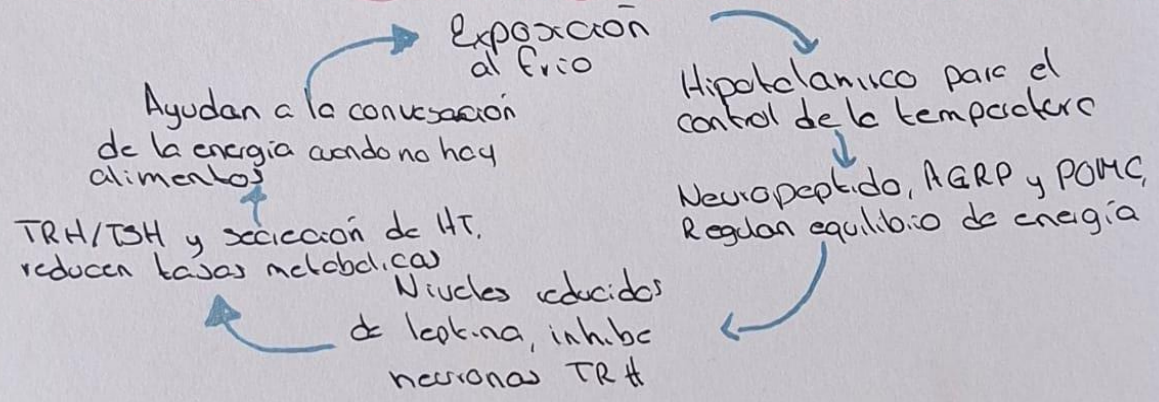 Exposición
al frio
Hipotalamico para el
control de la temperatura
Neuropeptido, AGRP y POMC,
Regulan equilibrio de energía
Niveles reducidos
de leptina, inhibe
neuronas TRH
TRH/TSH y secreción de HT.
reducen tasas metabolicas
Ayudan a la conversación
de la energia cuando no hay
alimentos